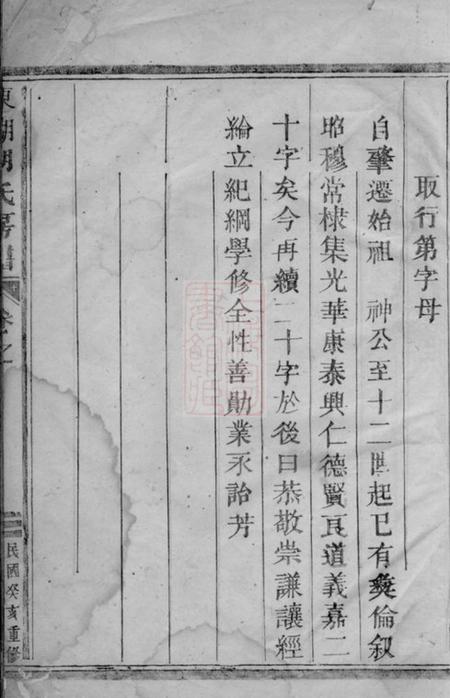 取行第字母
自肇遷始祖 神公至十二世起已有彝倫叙
昭穆常棣集光華康泰興仁德賢良道義嘉二
十字矣今再續二十字於後曰恭敬崇謙讓經
綸立紀綱學修全性善勛業永詒芳
東湖胡氏房譜
卷之一
民國癸亥重修